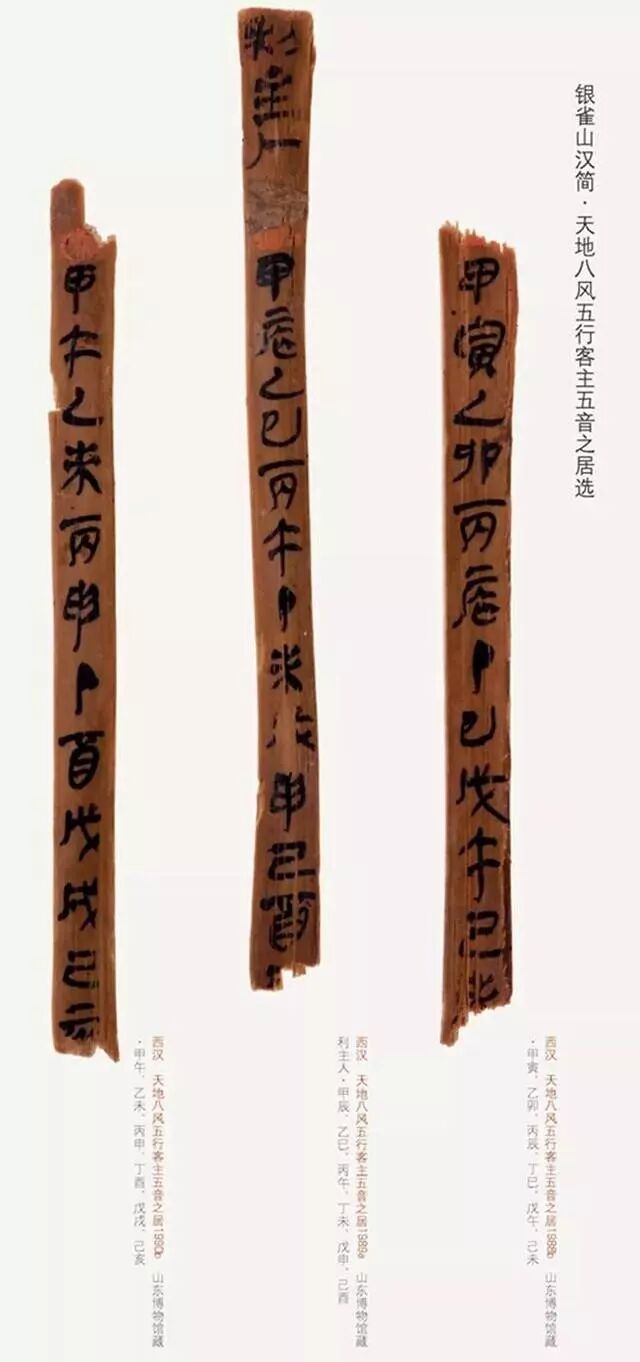 银雀山汉简·天地八风五行客主五音之居选
甲寅乙卯丙辰丁巳戊午己未
西汉 天地八风五行客主五音之居 山东博物馆藏
·甲寅、乙卯、丙辰、丁巳、戊午、己未
利主人·甲辰乙巳丙午丁未戊申己酉
西汉 天地八风五行客主五音之居 山东博物馆藏
利主人·甲辰、乙巳、丙午、丁未、戊申、己酉
甲午乙未丙申丁酉戊戌己亥
西汉 天地八风五行客主五音之居 山东博物馆藏
·甲午、乙未、丙申、丁酉、戊戌、己亥